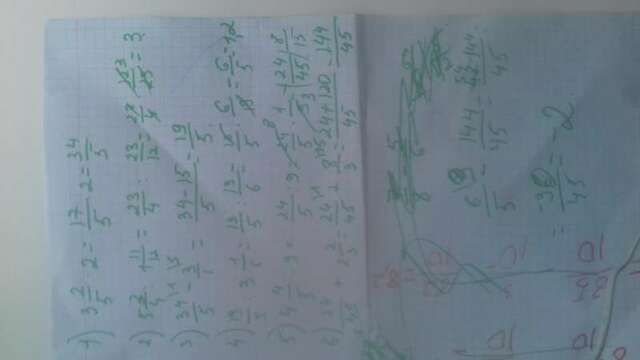 1) 3 2/5 · 2 = 17/5 · 2 = 34/5
2) 5 3/4 : 1 11/12 = 23/4 : 23/12 = 23/4 · 12/23 = 3
3) 34/5 - 3/1 = 34-15/5 = 19/5
4) 19/5 : 3 1/6 = 19/5 : 19/6 = 19/5 · 6/19 = 6/5 = 1,2
5) 4 4/5 : 9 = 24/5 : 9 = 24/5 · 1/9 = 24/45 8/15
6) 24/45 + 2 2/3 = 24/45 + 8/3 = 24+120/45 = 144/45
6/5 - 144/45 = 54-144/45
= -90/45 = -2